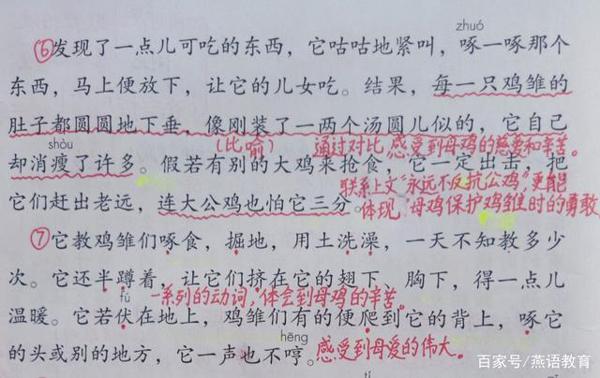 zhuó
⑥发现了一点儿可吃的东西，它咕咕地紧叫，啄一啄那个
东西，马上便放下，让它的儿女吃。结果，每一只鸡雏的
肚子都圆圆地下垂，像刚装了一两个汤圆儿似的，它自己
shòu
（比喻） 通过对比，感受到母鸡的慈爱和辛苦。
却消瘦了许多。假若有别的大鸡来抢食，它一定出击，把
联系上文“永远不反抗公鸡”，更能
它们赶出老远，连大公鸡也怕它三分。
体现母鸡保护鸡雏时的勇敢
⑦它教鸡雏们啄食，掘地，用土洗澡，一天不知教多少
次。它还半蹲着，让它们挤在它的翅下、胸下，得一点儿
fú
一系列的动词，体会到母鸡的辛苦。
温暖。它若伏在地上，鸡雏们有的便爬到它的背上，啄它
hēng
的头或别的地方，它一声也不哼。
感受到母爱的伟大。
百家号/燕语教育